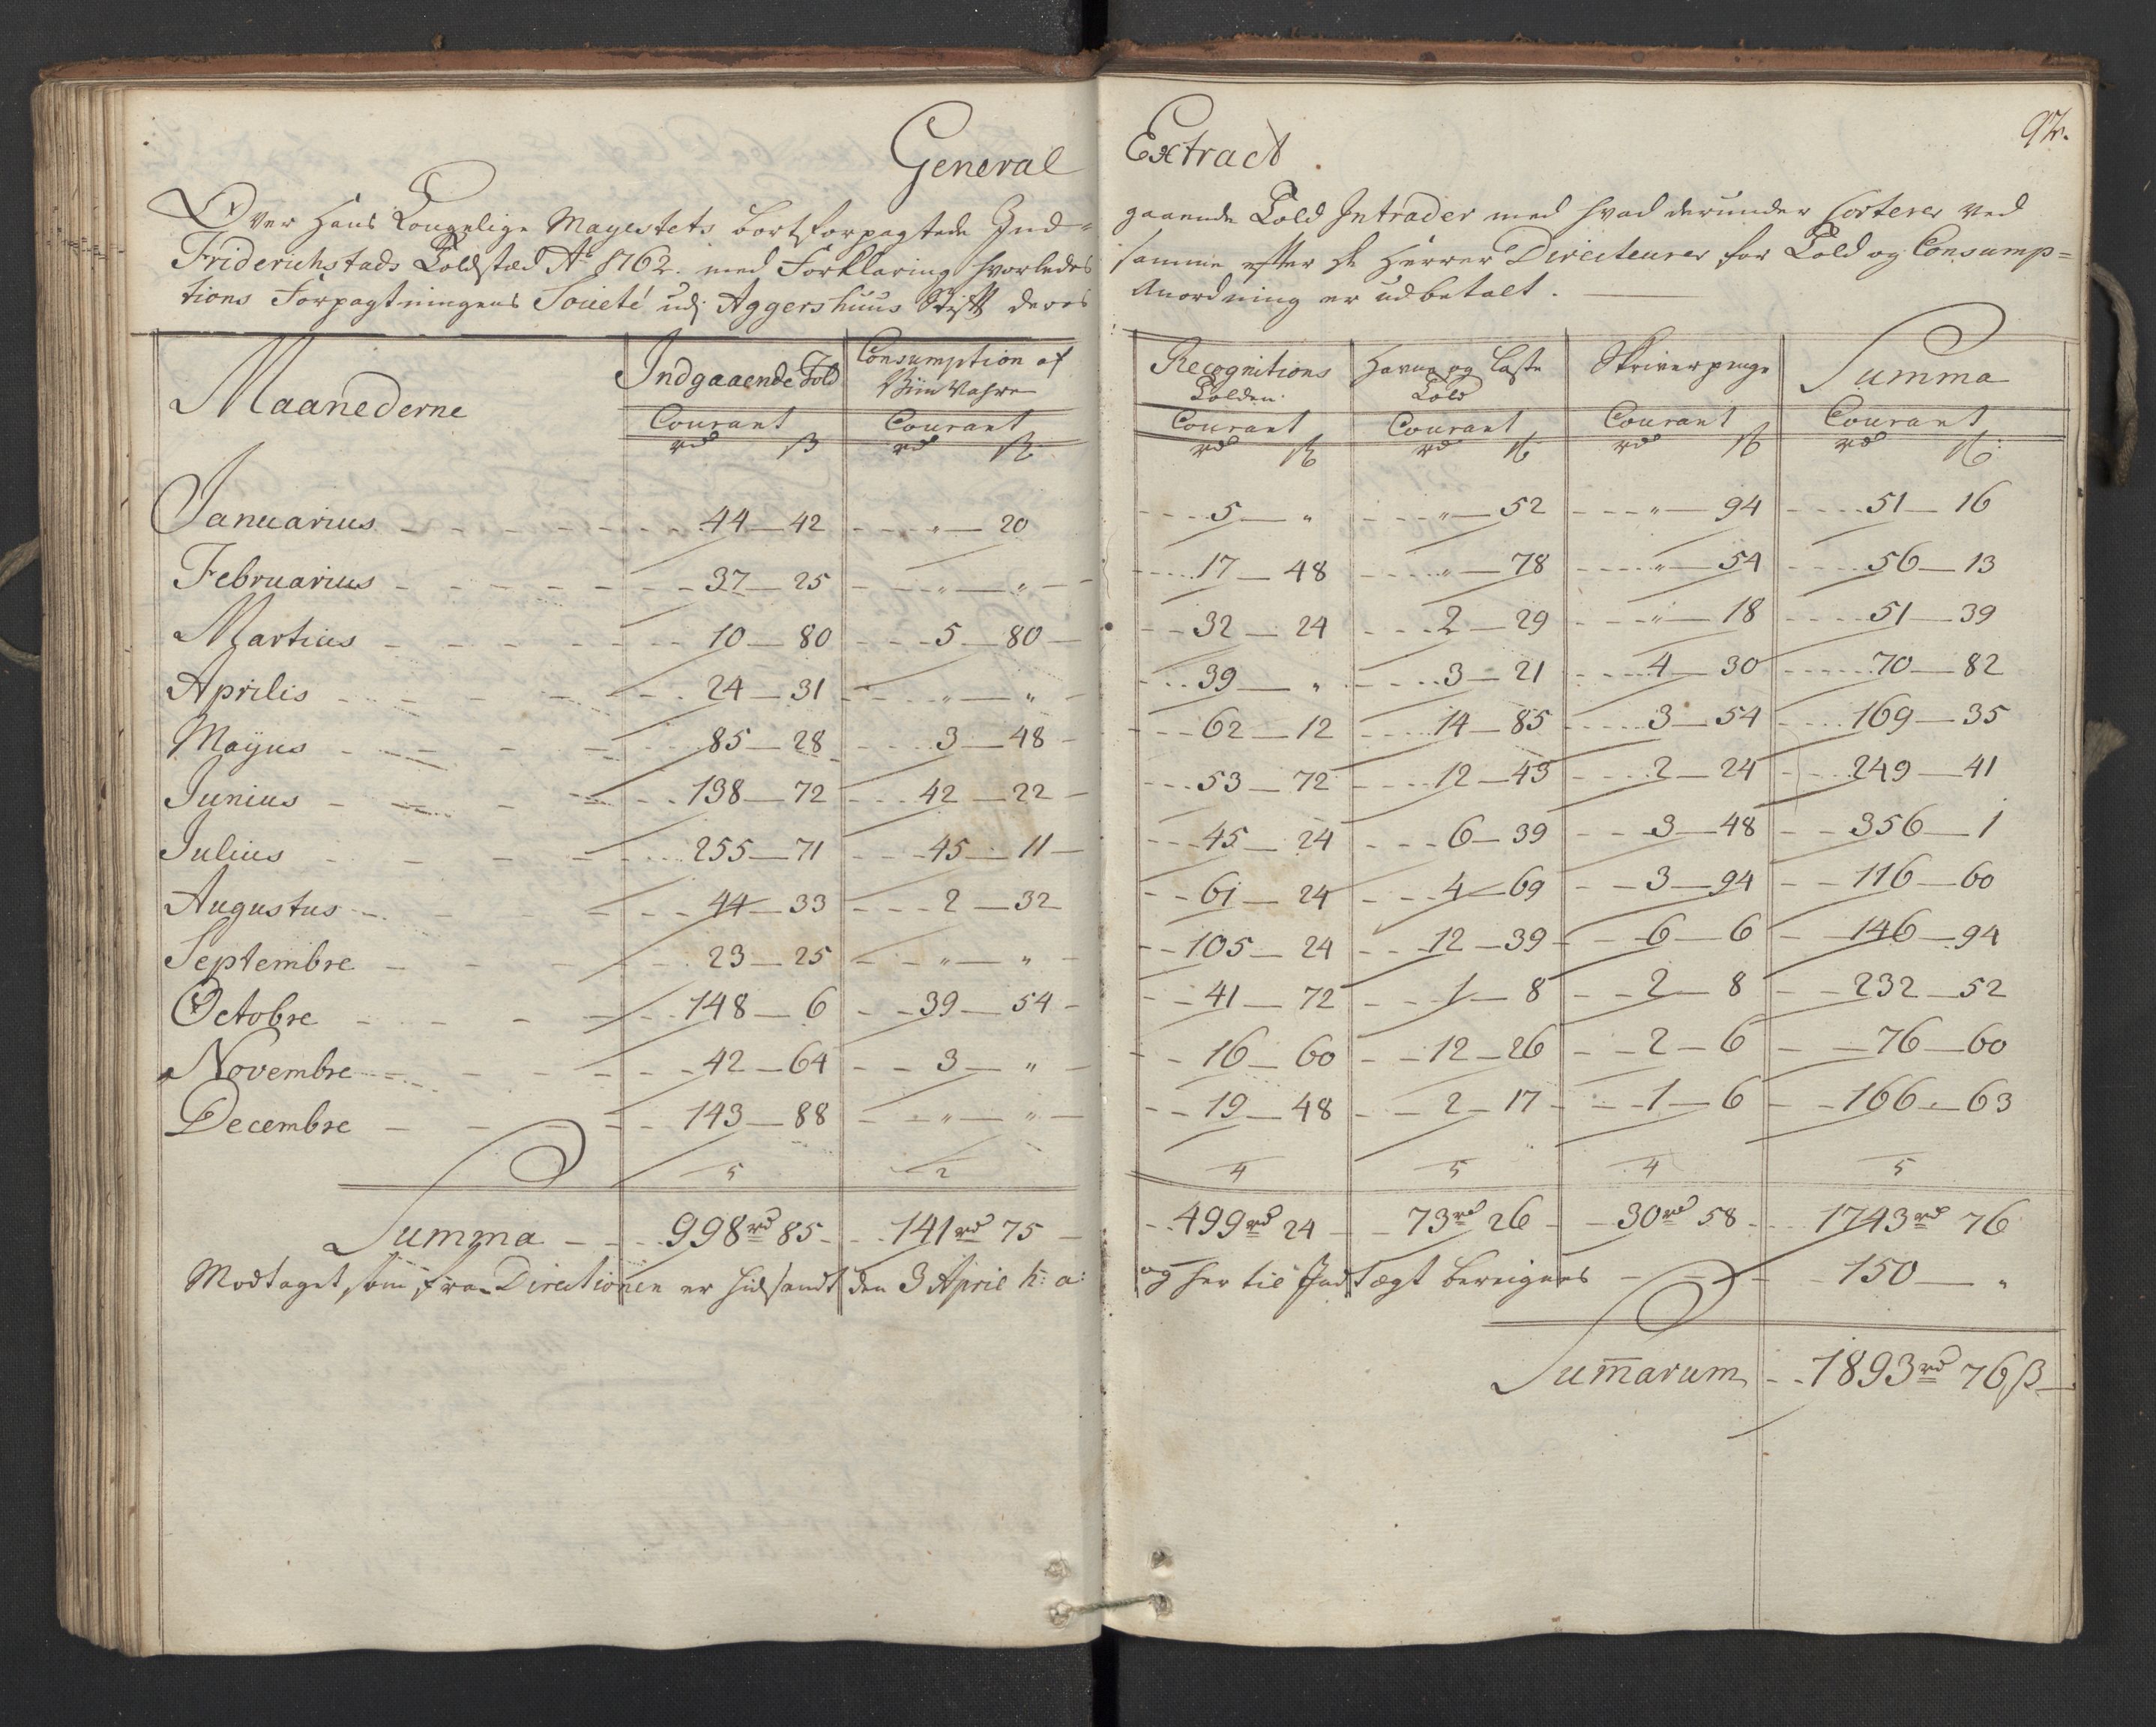 General Extract
92.
Over Hans Kongelige Mayestets bortforpagtede Ind= gaaende Told Intrader med hvad derunder Sorterer ved
Friderichstads Toldsted Ao 1762. med Forklaring hvorledes samme efter de Herrer Directeurer for Told og Consump=
tions Forpagtningens Societé udi Aggershuus Stift deres Anordning er udbetalt.
Maanederne | Indgaaende Told | Consumption af Viin Vahre | Recognitions Tolden | Havne og Laste Told | Skriverpenge | Summa
Courant | Courant | Courant | Courant | Courant | Courant
rd ß | rd ß | rd ß | rd ß | rd ß | rd ß
Januarius 44 — 42 | " — 20 | 5 — " | " — 52 | " — 94 | 51 — 16
Februarius 37 — 25 | " — " | 17 — 48 | " — 78 | " — 54 | 56 — 13
Martius 10 — 80 | 5 — 80 | 32 — 24 | 2 — 29 | " — 18 | 51 — 39
Aprilis 24 — 31 | " — " | 39 — " | 3 — 21 | 4 — 30 | 70 — 82
Mayus 85 — 28 | 3 — 48 | 62 — 12 | 14 — 85 | 3 — 54 | 169 — 35
Junius 138 — 72 | 42 — 22 | 53 — 72 | 12 — 43 | 2 — 24 | 249 — 41
Julius 255 — 71 | 45 — 11 | 45 — 24 | 6 — 39 | 3 — 48 | 356 — 1
Augustus 44 — 33 | 2 — 32 | 61 — 24 | 4 — 69 | 3 — 94 | 116 — 60
Septembre 23 — 25 | " — " | 105 — 24 | 12 — 39 | 6 — 6 | 146 — 94
Octobre 148 — 6 | 39 — 54 | 41 — 72 | 1 — 8 | 2 — 8 | 232 — 52
Novembre 42 — 64 | 3 — " | 16 — 60 | 12 — 26 | 2 — 6 | 76 — 60
Decembre 143 — 88 | " — " | 19 — 48 | 2 — 17 | 1 — 6 | 166 — 63
5 | 2 | 4 | 5 | 4 | 5
Summa 998 rd 85 | 141 rd 75 | 499 rd 24 | 73 rd 26 | 30 rd 58 | 1743 rd 76
Modtaget, som fra Directionen er hidsendt den 3 April h: a: og her til Indtægt bereignes 150 — "
Sum̄arum 1893 rd 76 ß